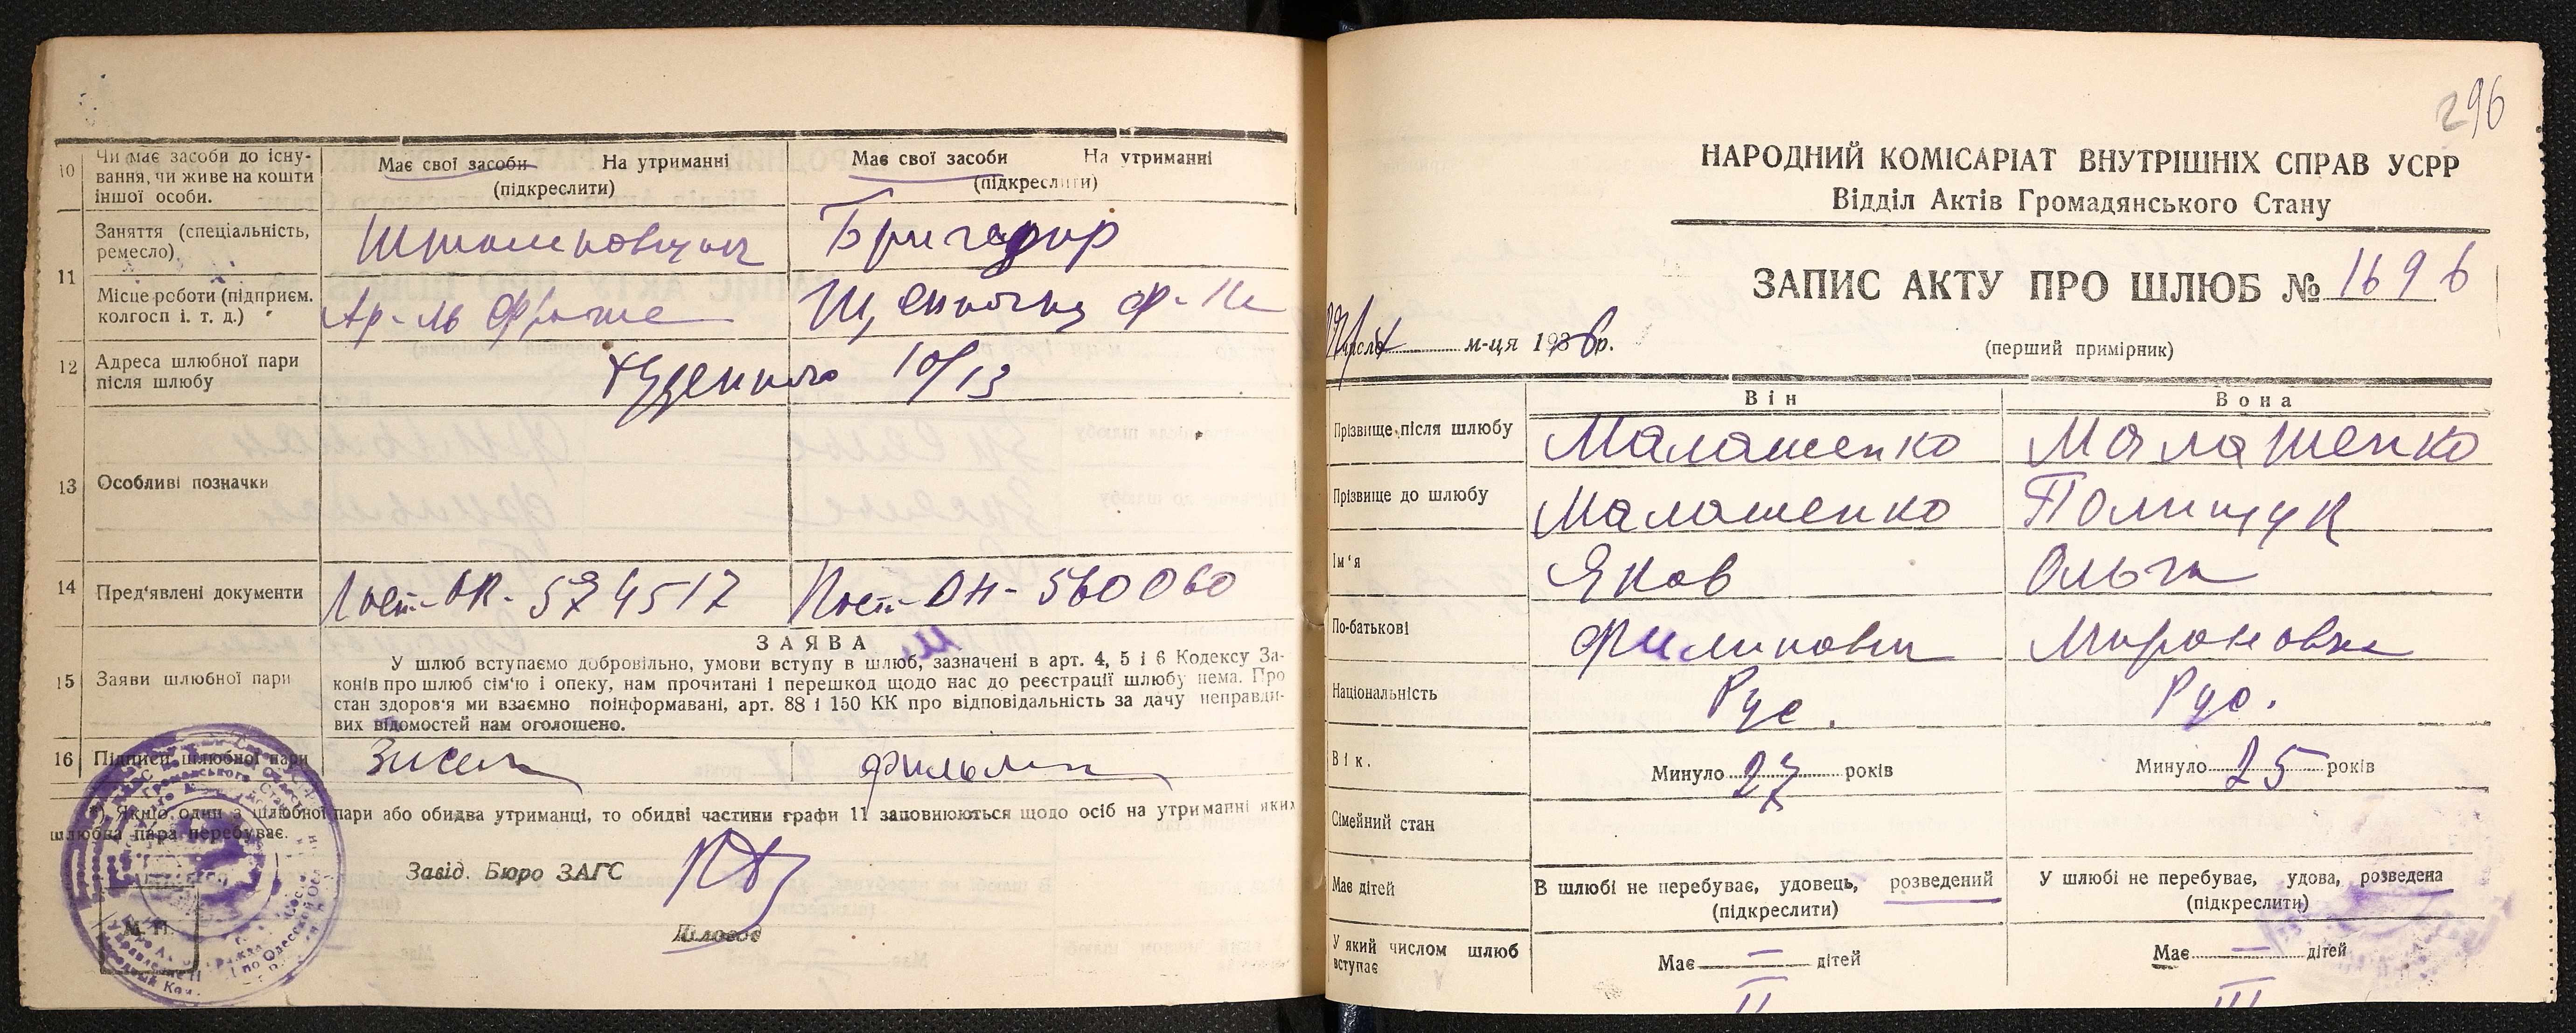 10
Чи має засоби до існу-
вання, чи живе на кошти
іншої особи.
Має свої засоби На утриманні
(підкреслити)
Має свої засоби На утриманні
(підкреслити)
11
Заняття (спеціальність,
ремесло)
Бригадир
Місце роботи (підприєм.
колгосп і. т. д.)
12
Адреса шлюбної пари
після шлюбу
10/13
13
Особливі позначки
14
Пред'явлені документи
560060
15
Заяви шлюбної пари
ЗАЯВА
У шлюб вступаємо добровільно, умови вступу в шлюб, зазначені в арт. 4, 5 і 6 Кодексу За-
конів про шлюб сім'ю і опеку, нам прочитані і перешкод щодо нас до реєстрації шлюбу нема. Про
стан здоров'я ми взаємно поінформавані, арт. 88 і 150 КК про відповідальність за дачу неправди-
вих відомостей нам оголошено.
16
Підписи шлюбної пари
*) Якщо один з шлюбної пари або обидва утриманці, то обидві частини графи 11 заповнюються щодо осіб на утриманні яких
шлюбна пара перебуває.
Завід. Бюро ЗАГС
Діловод
М. П.
296
НАРОДНИЙ КОМІСАРІАТ ВНУТРІШНІХ СПРАВ УСРР
Відділ Актів Громадянського Стану
ЗАПИС АКТУ ПРО ШЛЮБ № 1696
числа м-ця 1936р.
(перший примірник)
Він
Вона
Прізвище після шлюбу
Малашенко
Малашенко
Прізвище до шлюбу
Малашенко
Полищук
Ім'я
Яков
Ольга
По-батькові
Филипович
Мироновна
Національність
Рус.
Рус.
Вік.
Минуло 27 років
Минуло 25 років
Сімейний стан
Має дітей
В шлюбі не перебуває, удовець, розведений
(підкреслити)
У шлюбі не перебуває, удова, розведена
(підкреслити)
У який числом шлюб
вступає
Має — дітей
Має — дітей
II
III